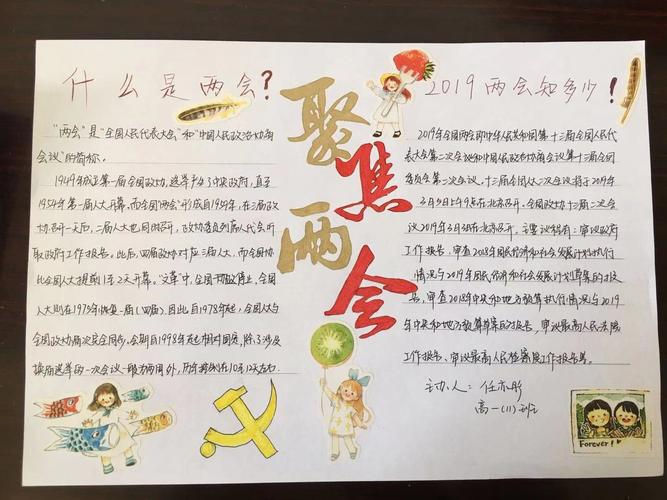 什么是两会?
"两会"是"全国人民代表大会"和"中国人民政治协商
会议"的简称。
1949年成立第一届全国政协,选举产生了中央政府,直至
1954年第一届人大开幕。而全国"两会"形成自1959年,在三届政
协召开一天后,二届人大也同时召开,政协委员列席人代会听
取政府工作报告。此后,四届政协对应三届人大,而全国政协
比全国人大提前1至2天开幕。"文革"中,全国两会停止,全国
人大则在1975年恢复一届(四届)。因此自1978年起,全国人大与
全国政协届次完全同步,会期自1998年起相对固定,除了涉及
换届选举的一次会议一般为两周外,历年按例在10天12天左右.
聚焦两会
2019两会知多少!
2019年全国两会即中华人民共和国第十三届全国人民代
表大会第二次会议和中国人民政协商会议第十三届全国
委员会第二次会议。十三届全国人大二次会议将于2019年
3月5日上午9点在北京召开。全国政协十三届二次会
议2019年3月3日在北京召开。主要议程有:审议政府
工作报告,审查2018年国民经济和社会发展计划执行
情况与2019年国民经济和社会发展计划草案的报
告,审查2018年中央和地方预算执行情况与2019
年中央和地方预算草案的报告,审议最高人民法院
工作报告、审议最高人民检察院工作报告等。
主办人:任亦彤
高一(11)班
Forever!